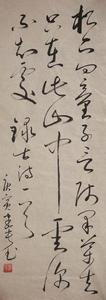 松下问童子言师采药去
只在此山中雲深
不知處 録古诗一首
庚寅